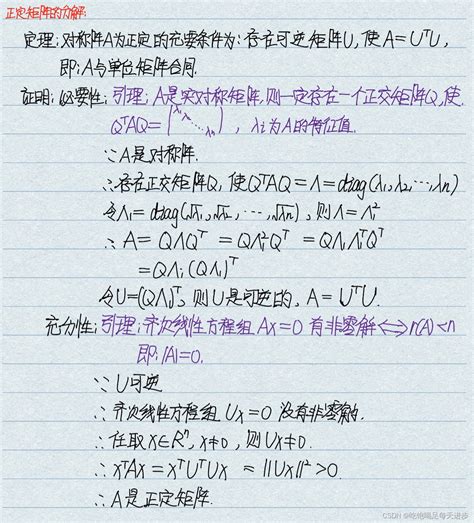 正定矩阵的分解:
定理:对称阵A为正定的充要条件为:存在可逆矩阵U,使A=UᵀU,
即:A与单位矩阵合同.
证明:必要性:引理:A是实对称矩阵,则一定存在一个正交矩阵Q,使
QᵀAQ=(λ₁ λ₂ ⋱ λₙ),λi为A的特征值.
∵A是对称阵.
∴存在正交矩阵Q,使QᵀAQ=Λ=diag(λ₁,λ₂,…,λn)
令Λ₁=diag(√λ₁,√λ₂,…,√λn),则Λ=Λ₁²
∴A=QΛQᵀ=QΛ₁²Qᵀ=QΛ₁Λ₁ᵀQᵀ
=QΛ₁(QΛ₁)ᵀ
令U=(QΛ₁)ᵀ,则U是可逆的,A=UᵀU.
充分性:引理:齐次线性方程组Ax=0有非零解⟺r(A)<n
即:|A|=0.
∵U可逆
∴齐次线性方程组Ux=0没有非零解.
∴任取x∈Rⁿ,x≠0,则Ux≠0.
∴xᵀAx=xᵀUᵀUx=||Ux||²>0.
∴A是正定矩阵.
CSDN @吃饱喝足每天进步